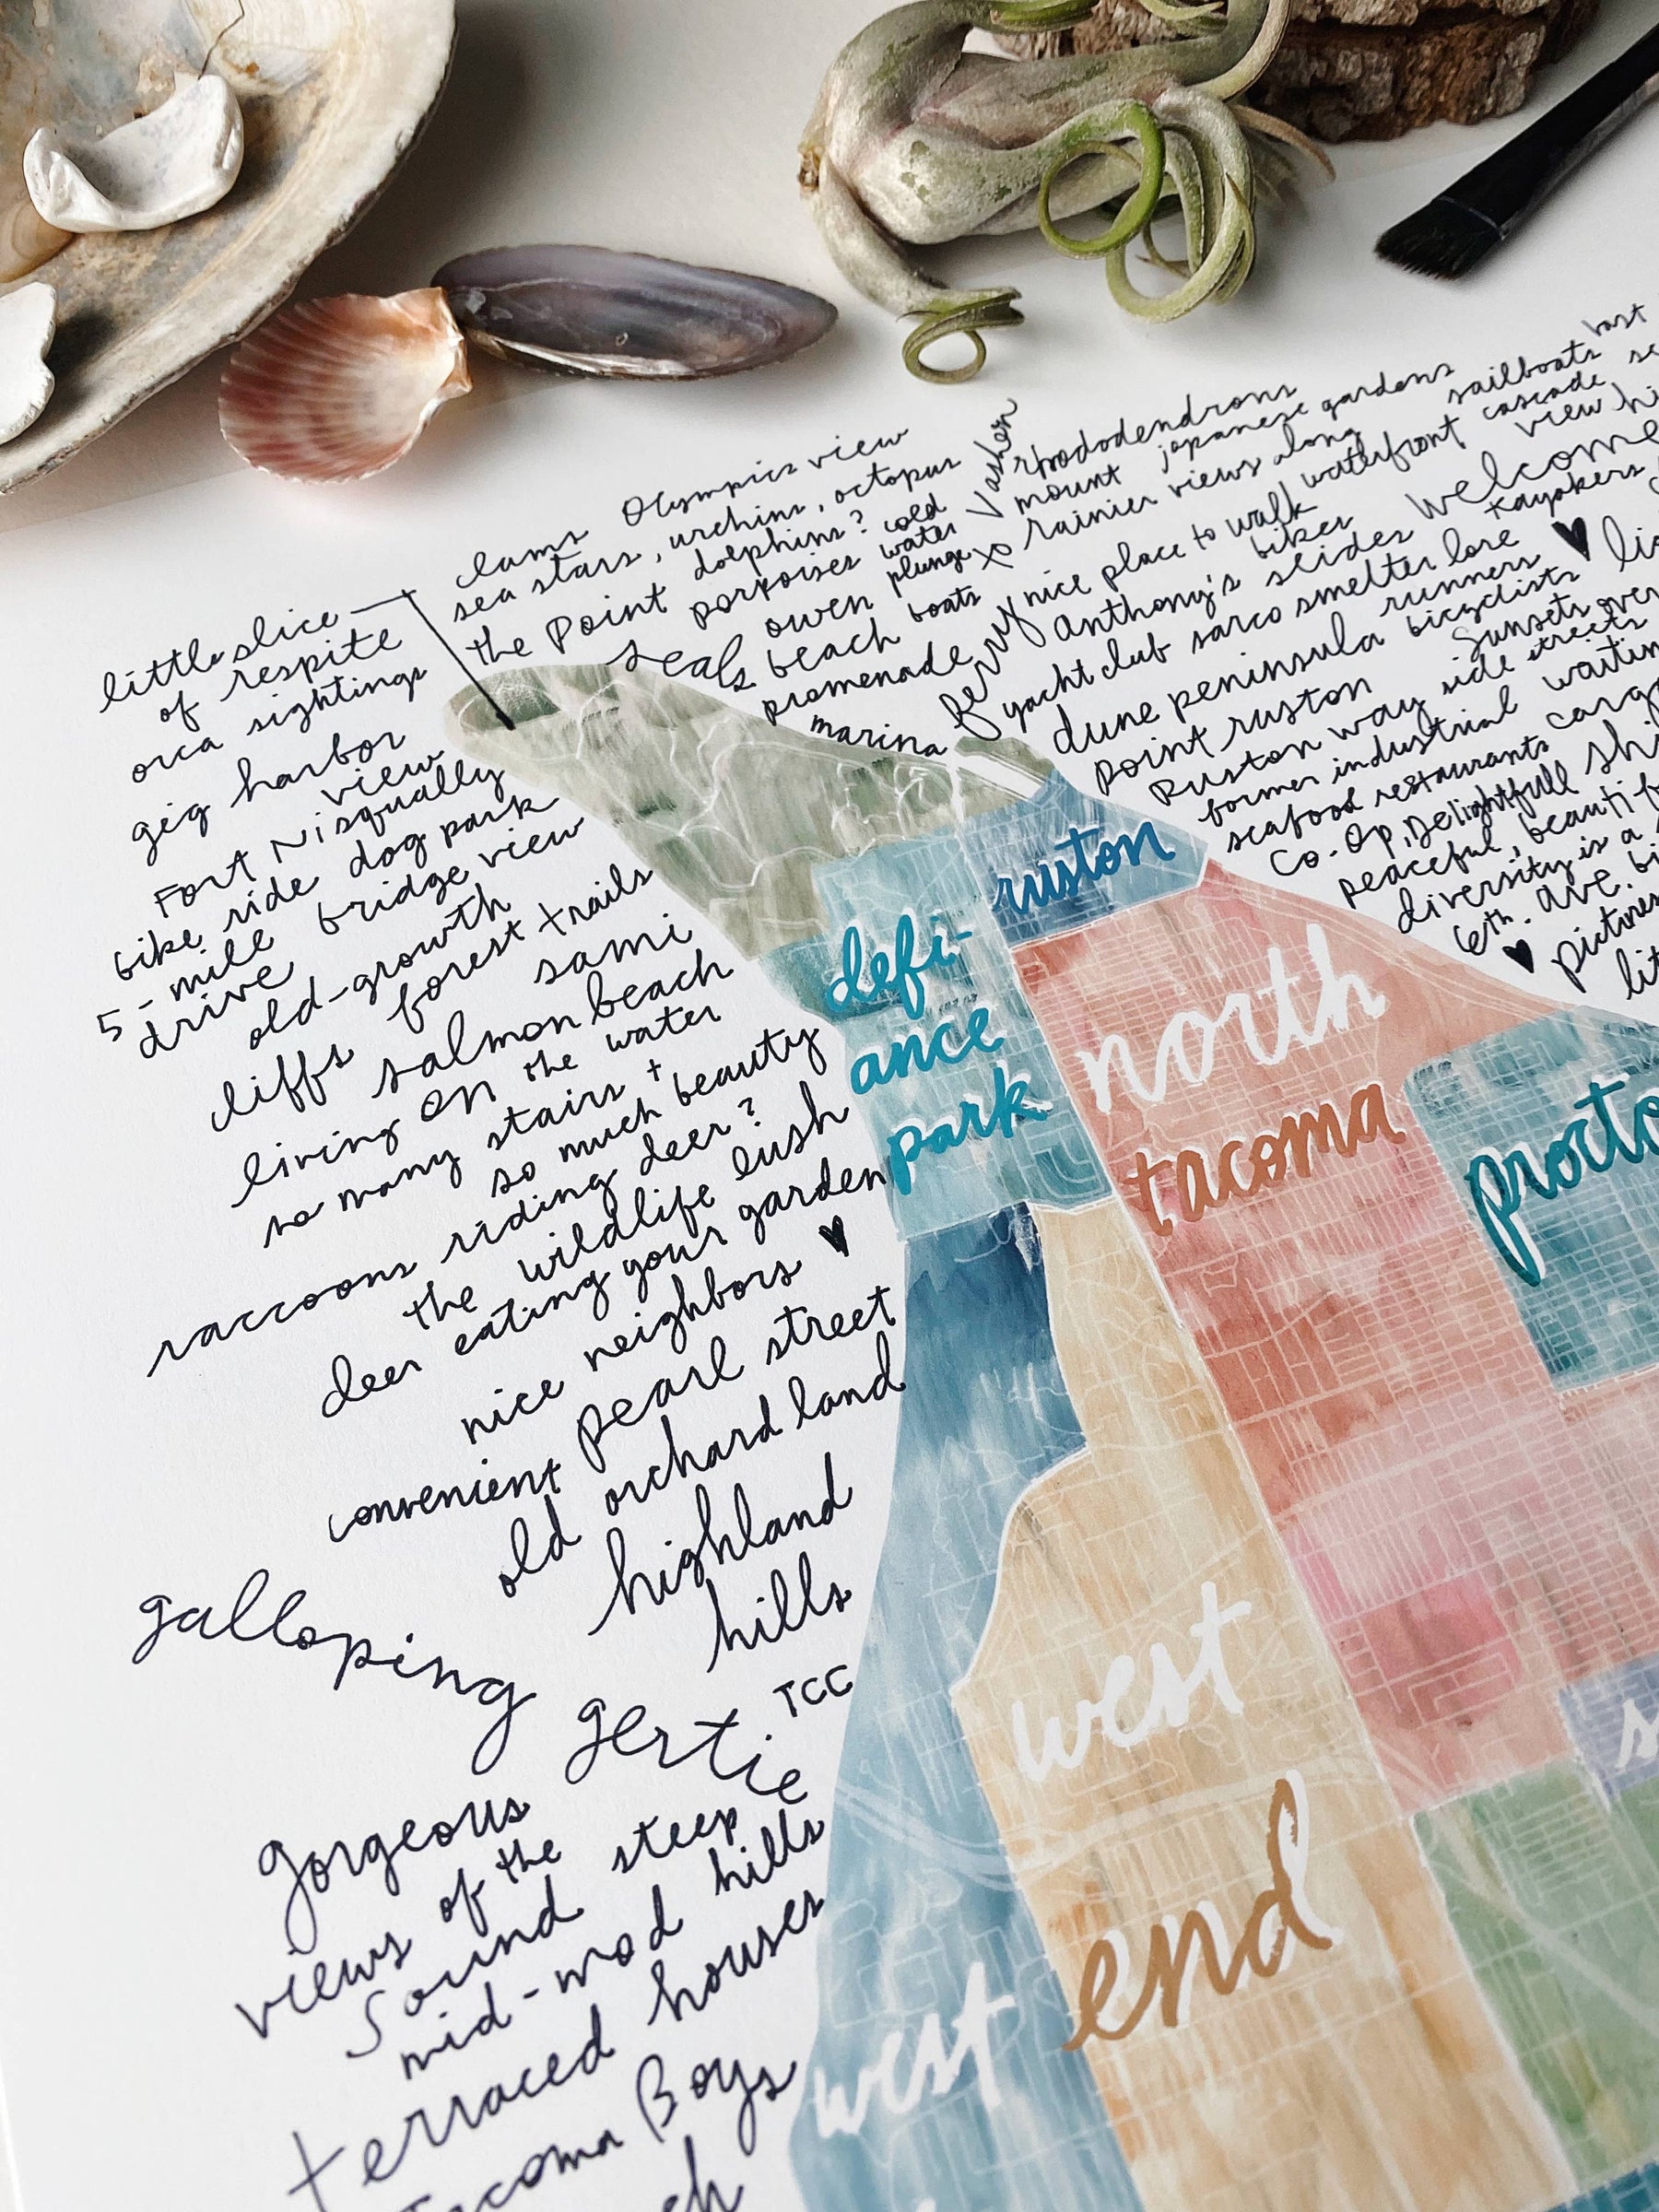 little slice
of respite
orca sightings
gig harbor
view
Fort Nisqually
bike ride dog park
5-mile bridge view
drive
old-growth
forest trails
cliffs sami
salmon beach
living on the water
so many stairs +
so much beauty
raccoons riding deer?
the wildlife lush
deer eating your garden
nice neighbors ♥
convenient pearl street
old orchard land
highland
hills
TCC
galloping gertie
gorgeous
views of the
Sound steep
mid-mod hills
terraced houses
Tacoma Boys
clams Olympics view
sea stars, urchins, octopus
the Point dolphins?
porpoises
cold
water
plunge
seals
Vashon
owen
beach boats
promenade
marina
ferry
rhododendrons
mount japanese gardens
rainier views along
waterfront
sailboats
cascade
view
nice place to walk
bikes
Anthony's slides Welcome
yacht club sarco smelter lore
Kayakers
dune peninsula runners ♥
bicyclists
point ruston
sunsets over
Ruston way side streets
former industrial
seafood restaurants
Co-Op, Delightfull
peaceful,
diversity is a
6th. Ave.
♥
ruston
defi-
ance
park
north
tacoma
west
end
west